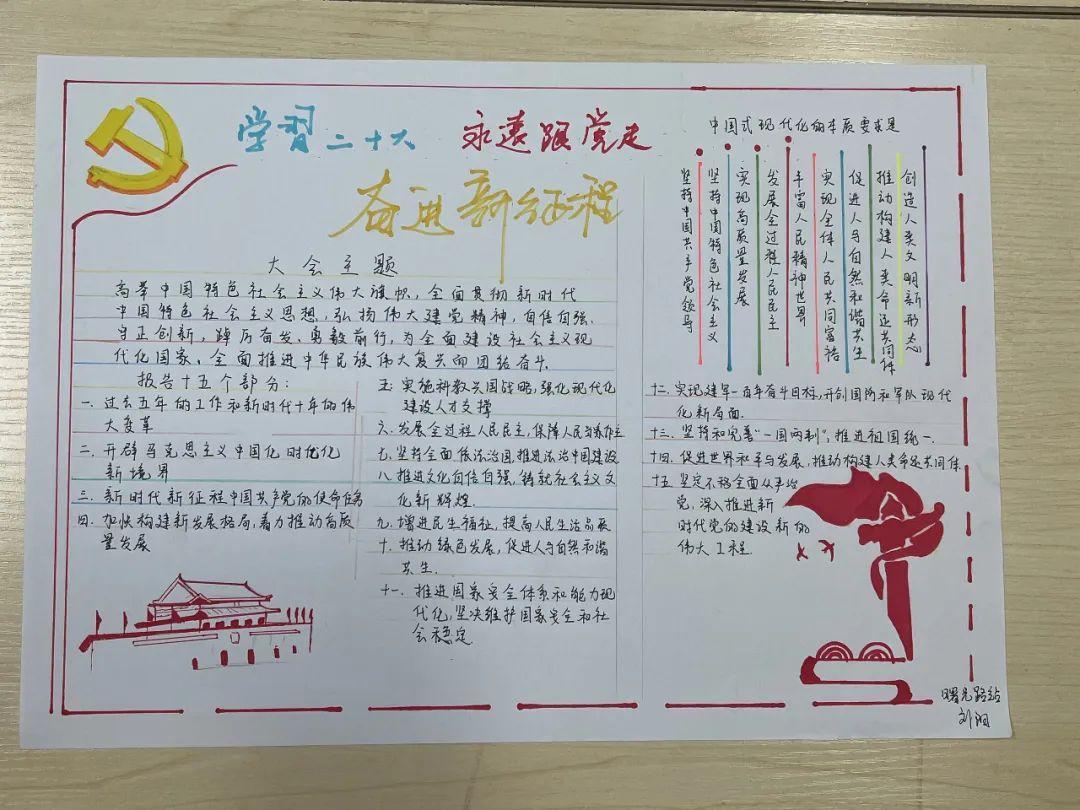 学习二十大 永远跟党走
奋进新征程
大会主题
高举中国特色社会主义伟大旗帜，全面贯彻新时代
中国特色社会主义思想，弘扬伟大建党精神，自信自强、
守正创新，踔厉奋发、勇毅前行，为全面建设社会主义现
代化国家、全面推进中华民族伟大复兴而团结奋斗。
报告十五个部分：
一、过去五年的工作和新时代十年的伟
大变革
二、开辟马克思主义中国化时代化
新境界
三、新时代新征程中国共产党的使命任务
四、加快构建新发展格局，着力推动高质
量发展
五、实施科教兴国战略，强化现代化
建设人才支撑
六、发展全过程人民民主，保障人民当家作主
七、坚持全面依法治国，推进法治中国建设
八、推进文化自信自强，铸就社会主义文
化新辉煌
九、增进民生福祉，提高人民生活品质
十、推动绿色发展，促进人与自然和谐
共生.
十一、推进国家安全体系和能力现
代化，坚决维护国家安全和社
会稳定
中国式现代化的本质要求是
坚持中国共产党领导
坚持中国特色社会主义
实现高质量发展
发展全过程人民民主
丰富人民精神世界
实现全体人民共同富裕
促进人与自然和谐共生
推动构建人类命运共同体
创造人类文明新形态
十二、实现建军一百年奋斗目标，开创国防和军队现代
化新局面.
十三、坚持和完善“一国两制”，推进祖国统一.
十四、促进世界和平与发展，推动构建人类命运共同体
十五、坚定不移全面从严治
党，深入推进新
时代党的建设新的
伟大工程
曙光路站
刘润